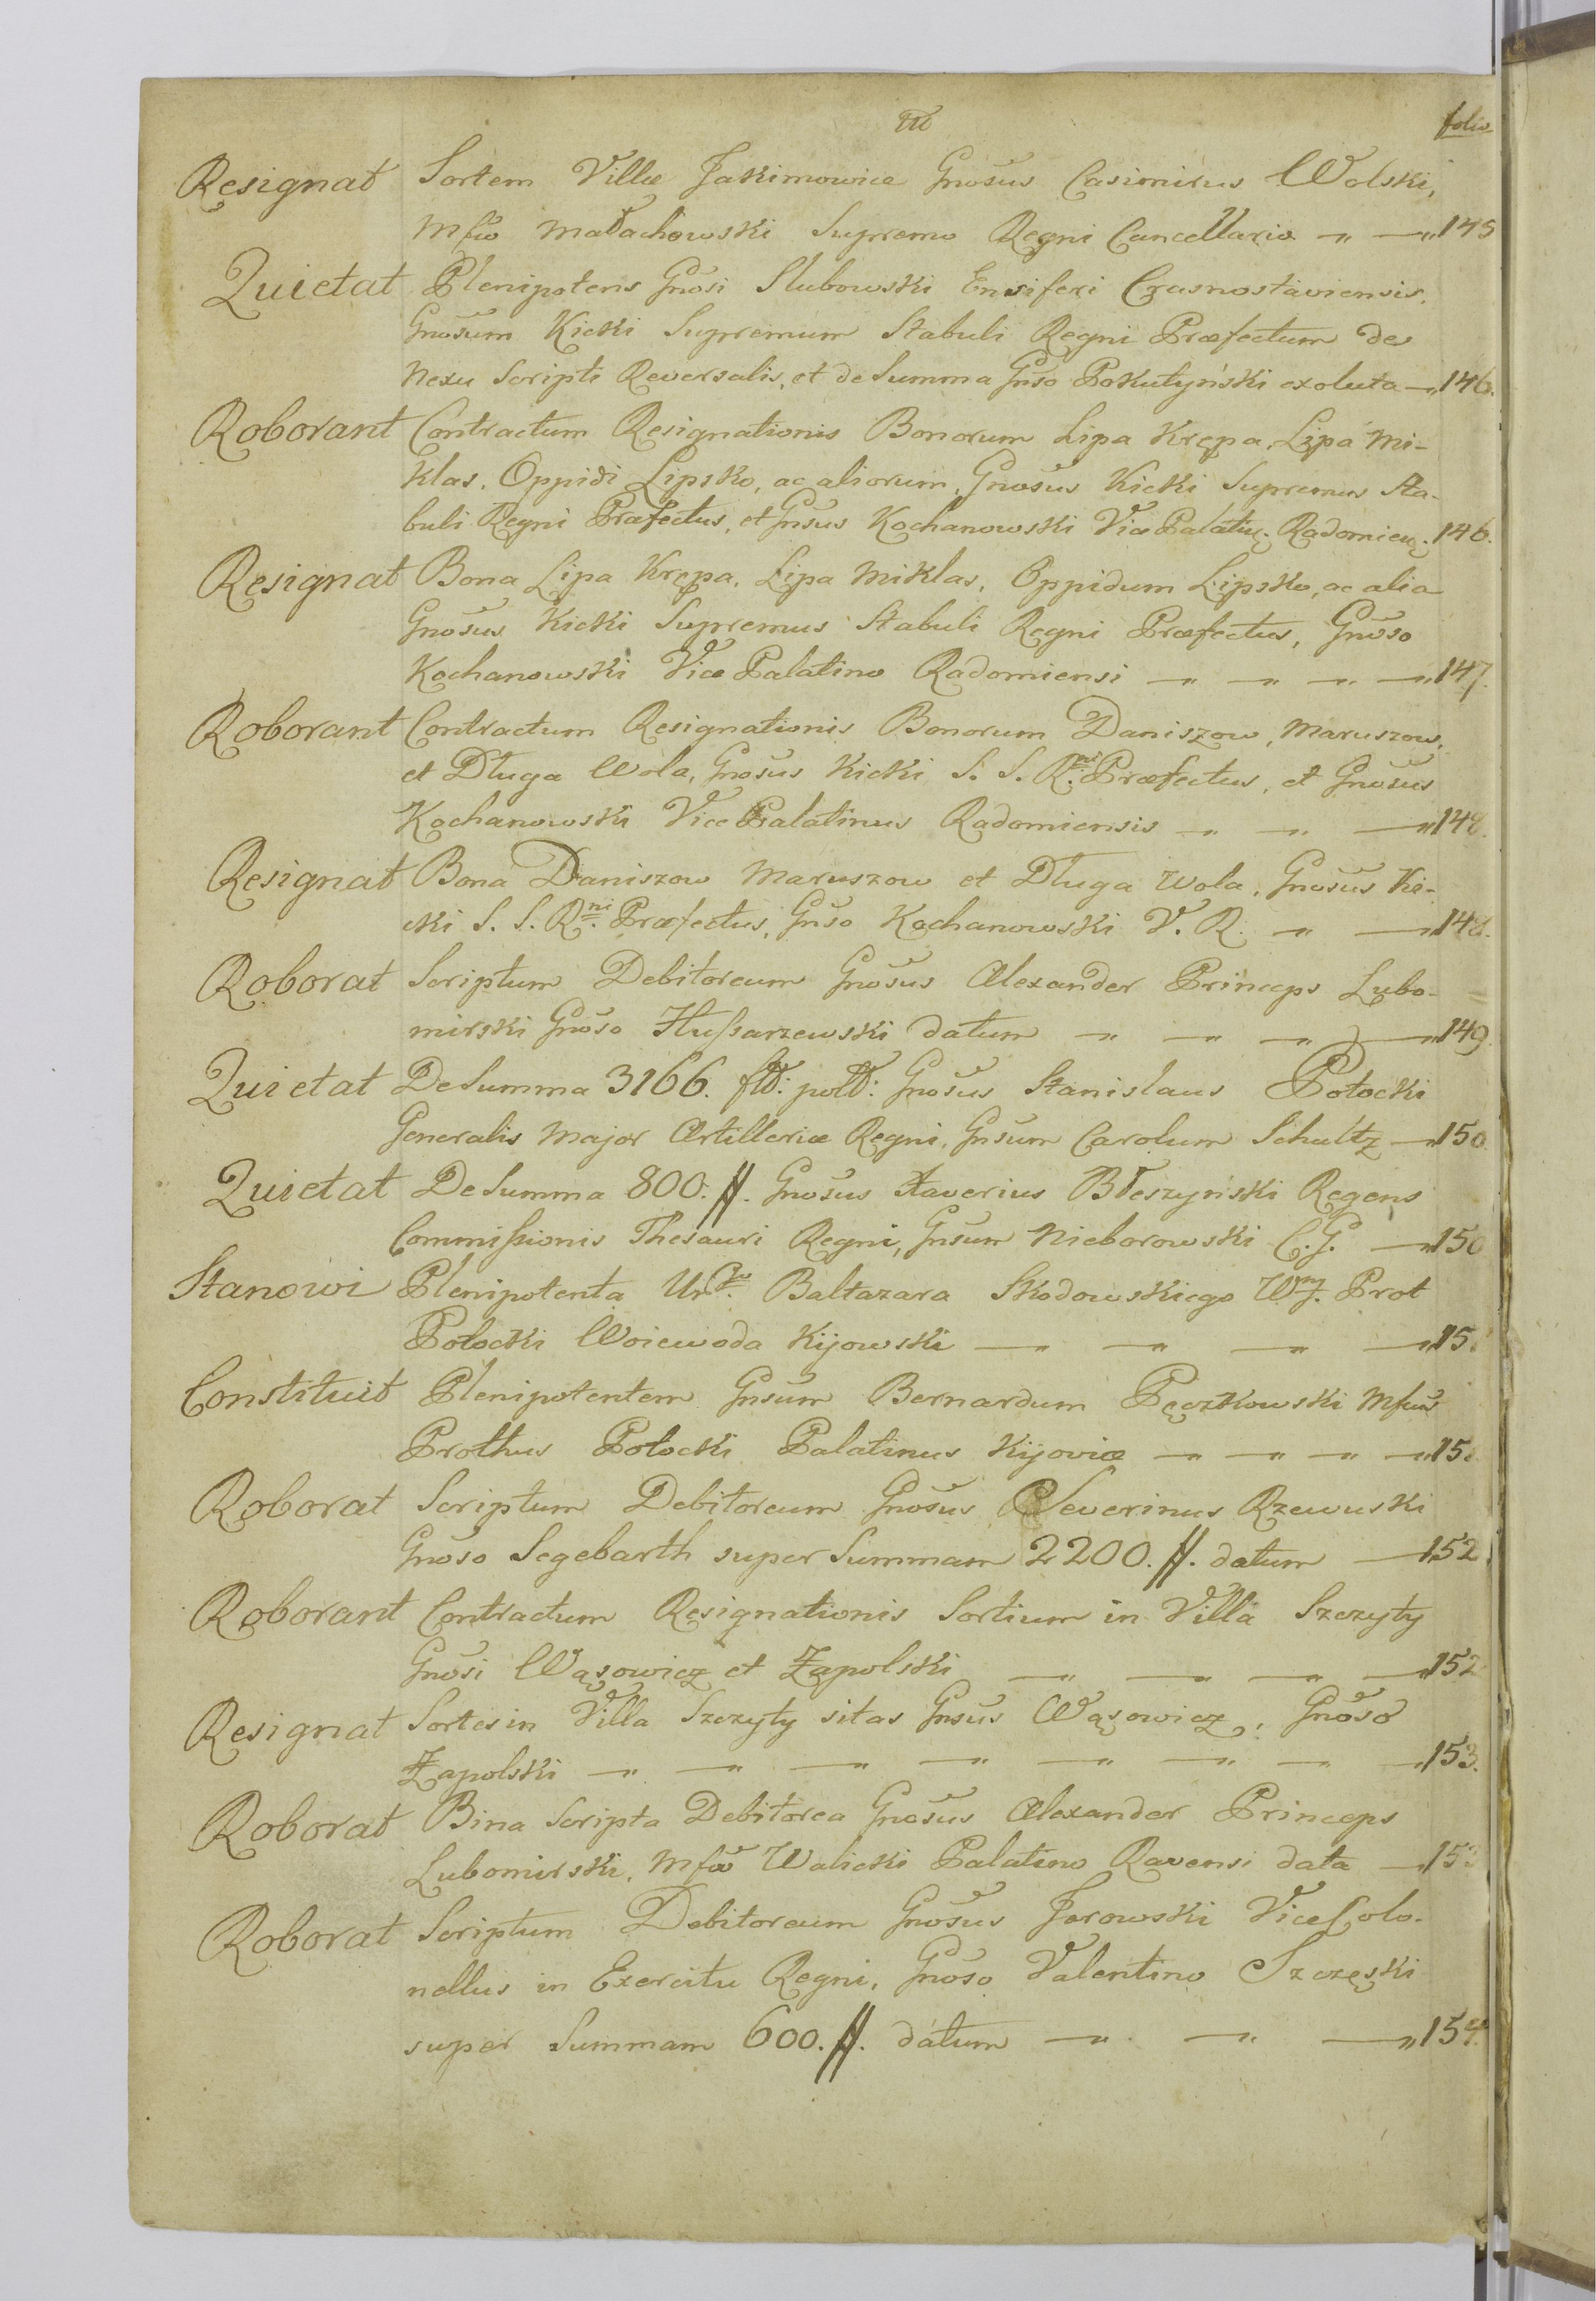 folio
Resignat Sortem Villæ Jakimowice Gnosus Casimirus Wolski,
Mfco Małachowski Supremo Regni Cancellario 145
Quietat Plenipotens Gnosi Slubowski Ensiferi Crasnostaviensis,
Gnosum Kicki Supremum Stabuli Regni Præfectum de
Nexu Scripti Reversalis, et de Summa Gnso Pokutyński exoluta 146.
Roborant Contractum Resignationis Bonorum Lipa Krępa, Lipa Mi-
klas, Oppidi Lipsko, ac aliorum, Gnosus Kicki Supremus Sta-
buli Regni Præfectus, et Gnsus Kochanowski Vice Palatin: Radomien: 146.
Resignat Bona Lipa Krępa, Lipa Miklas, Oppidum Lipsko, ac alia
Gnosus Kicki Supremus Stabuli Regni Præfectus, Gnoso
Kochanowski Vice Palatino Radomiensi 147.
Roborant Contractum Resignationis Bonorum Daniszow, Maruszow,
et Długa Wola, Gnosus Kicki S. S. Rni. Præfectus, et Gnosus
Kochanowski Vice Palatinus Radomiensis 148.
Resignat Bona Daniszow Maruszow et Długa Wola, Gnosus Ki-
cki S. S. Rni. Præfectus, Gnso Kochanowski V. R. 148.
Roborat Scriptum Debitoreum Gnosus Alexander Princeps Lubo-
mirski Gnoso Hussarzewski datum 149.
Quietat De Summa 3166. flł: polł: Gnosus Stanislaus Potocki
Generalis Major Artilleriæ Regni, Gnsum Carolum Schultz 150.
Quietat De Summa 800. ff. Gnosus Xaverius Błeszyński Regens
Commissionis Thesauri Regni, Gnsum Nieborowski C. G. 150
Stanowi Plenipotenta Urgo. Baltazara Skodowskiego Wny. Prot
Potocki Woiewoda Kijowski 15
Constituit Plenipotentem Gnsum Bernardum Pęczkowski Mfcus
Prothus Potocki Palatinus Kijoviæ 15
Roborat Scriptum Debitoreum Gnosus Severinus Rzewuski
Gnoso Segebarth super Summam 2200. ff. datum 152
Roborant Contractum Resignationis Sortium in Villa Szczyty
Gnosi Wąsowicz et Zapolski 152
Resignat Sortes in Villa Szczyty sitas Gnsus Wąsowicz, Gnoso
Zapolski 153.
Roborat Bina Scripta Debitorea Gnosus Alexander Princeps
Lubomirski, Mfco Walicki Palatino Ravensi data 153
Roborat Scriptum Debitoreum Gnosus Jerowski Vice Colo-
nellus in Exercitu Regni, Gnoso Valentino Szczęski
super Summam 600. ff. datum 154.